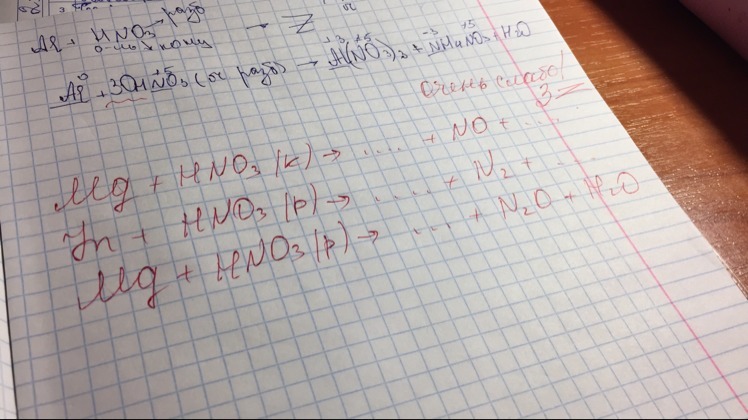 Al + HNO3 разб
конц
Al⁰ + 30HN⁺⁵O3 (оч разб) → Al⁺³(N⁺⁵O3)3 + N⁻³H4N⁺⁵O3 + H2O
Очень слабо!
3–
Mg + HNO3 (к) → .... + NO + ....
Zn + HNO3 (р) → .... + N2 + ....
Mg + HNO3 (р) → ... + N2O + H2O